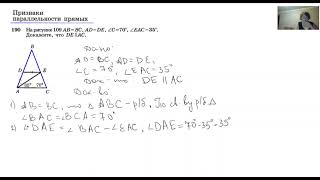 Признаки
параллельности прямых
190 На рисунке 109 AB=BC, AD=DE, ∠C=70°, ∠EAC=35°.
Докажите, что DE∥AC.
B
D
E
35°
70°
A
C
Дано:
AB=BC, AD=DE,
∠C=70°, ∠EAC=35°
Док-ть: DE∥AC
Док-во:
1) AB=BC, то △ABC - р/б. По св. р/б △
∠BAC=∠BCA=70°
2) ∠DAE=∠BAC-∠EAC, ∠DAE=70°-35°=35°